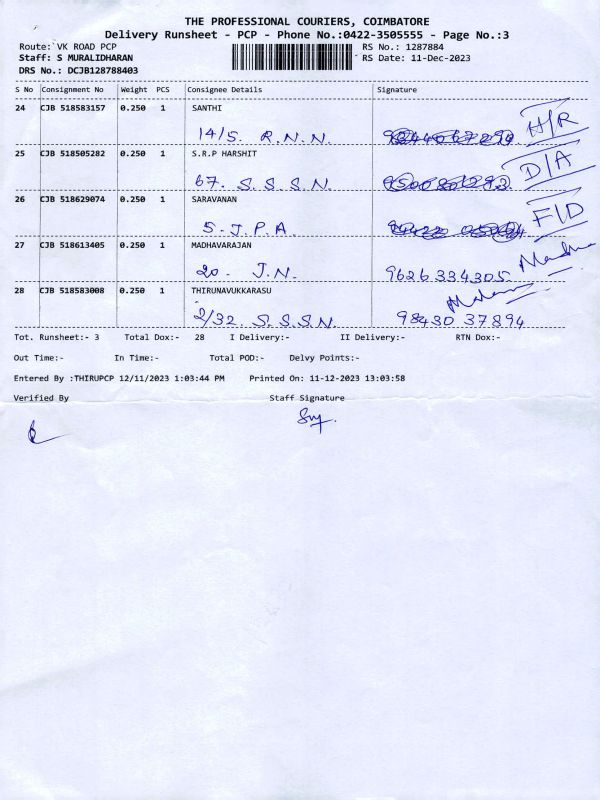 THE PROFESSIONAL COURIERS, COIMBATORE
Delivery Runsheet - PCP - Phone No.:0422-3505555 - Page No.:3
Route: VK ROAD PCP RS No.: 1287884
Staff: S MURALIDHARAN RS Date: 11-Dec-2023
DRS No.: DCJB128788403
S No Consignment No Weight PCS Consignee Details Signature
24 CJB 518583157 0.250 1 SANTHI
14/5. R.N.N. H/R
25 CJB 518505282 0.250 1 S.R.P HARSHIT
67. S.S.S.N. D/A
26 CJB 518629074 0.250 1 SARAVANAN
5. J.P.A F/D
27 CJB 518613405 0.250 1 MADHAVARAJAN
20. J.N. 9626334305.
28 CJB 518583008 0.250 1 THIRUNAVUKKARASU
2/32. S.S.S.N. 98430 37894
Tot. Runsheet:- 3 Total Dox:- 28 I Delivery:- II Delivery:- RTN Dox:-
Out Time:- In Time:- Total POD:- Delvy Points:-
Entered By :THIRUPCP 12/11/2023 1:03:44 PM Printed On: 11-12-2023 13:03:58
Verified By Staff Signature